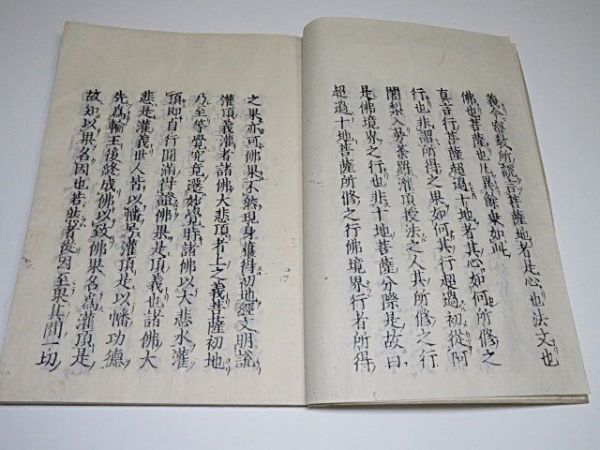 義今密教所說言菩薩地者是心也法文也
佛也菩薩也凡異餘東如此
真言行菩薩超過十地者其心如何所修之
行也非謂所得之果如何其行超過初從阿
闍梨入曼荼羅灌頂授法之人其所修之行
是佛境界之行也非十地菩薩分際是故曰
超過十地菩薩所修之行佛境界行者所得
之果亦可佛果不然現身獲得初地經文明說
灌頂義灌者諸佛大悲頂者上之義菩薩初地
乃至等覺究竟遷妙覺時諸佛以大悲水灌
頂即自行圓滿得證佛果是頂義也諸佛大
悲是灌義世人皆以幡号灌頂是以幡功德
先為輪王後終成佛以致佛果名為灌頂是
故知以果名因也若然者從因至果其間一切